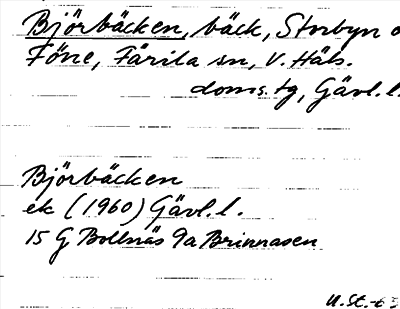 Björbäcken, bäck, Storbyn o
Föne, Färila sn, V. Häls.
doms.tg, Gävl.l.
Björbäcken
ek (1960) Gävl.l.
15 G Bollnäs 9a Brinnasen
U.St.-63